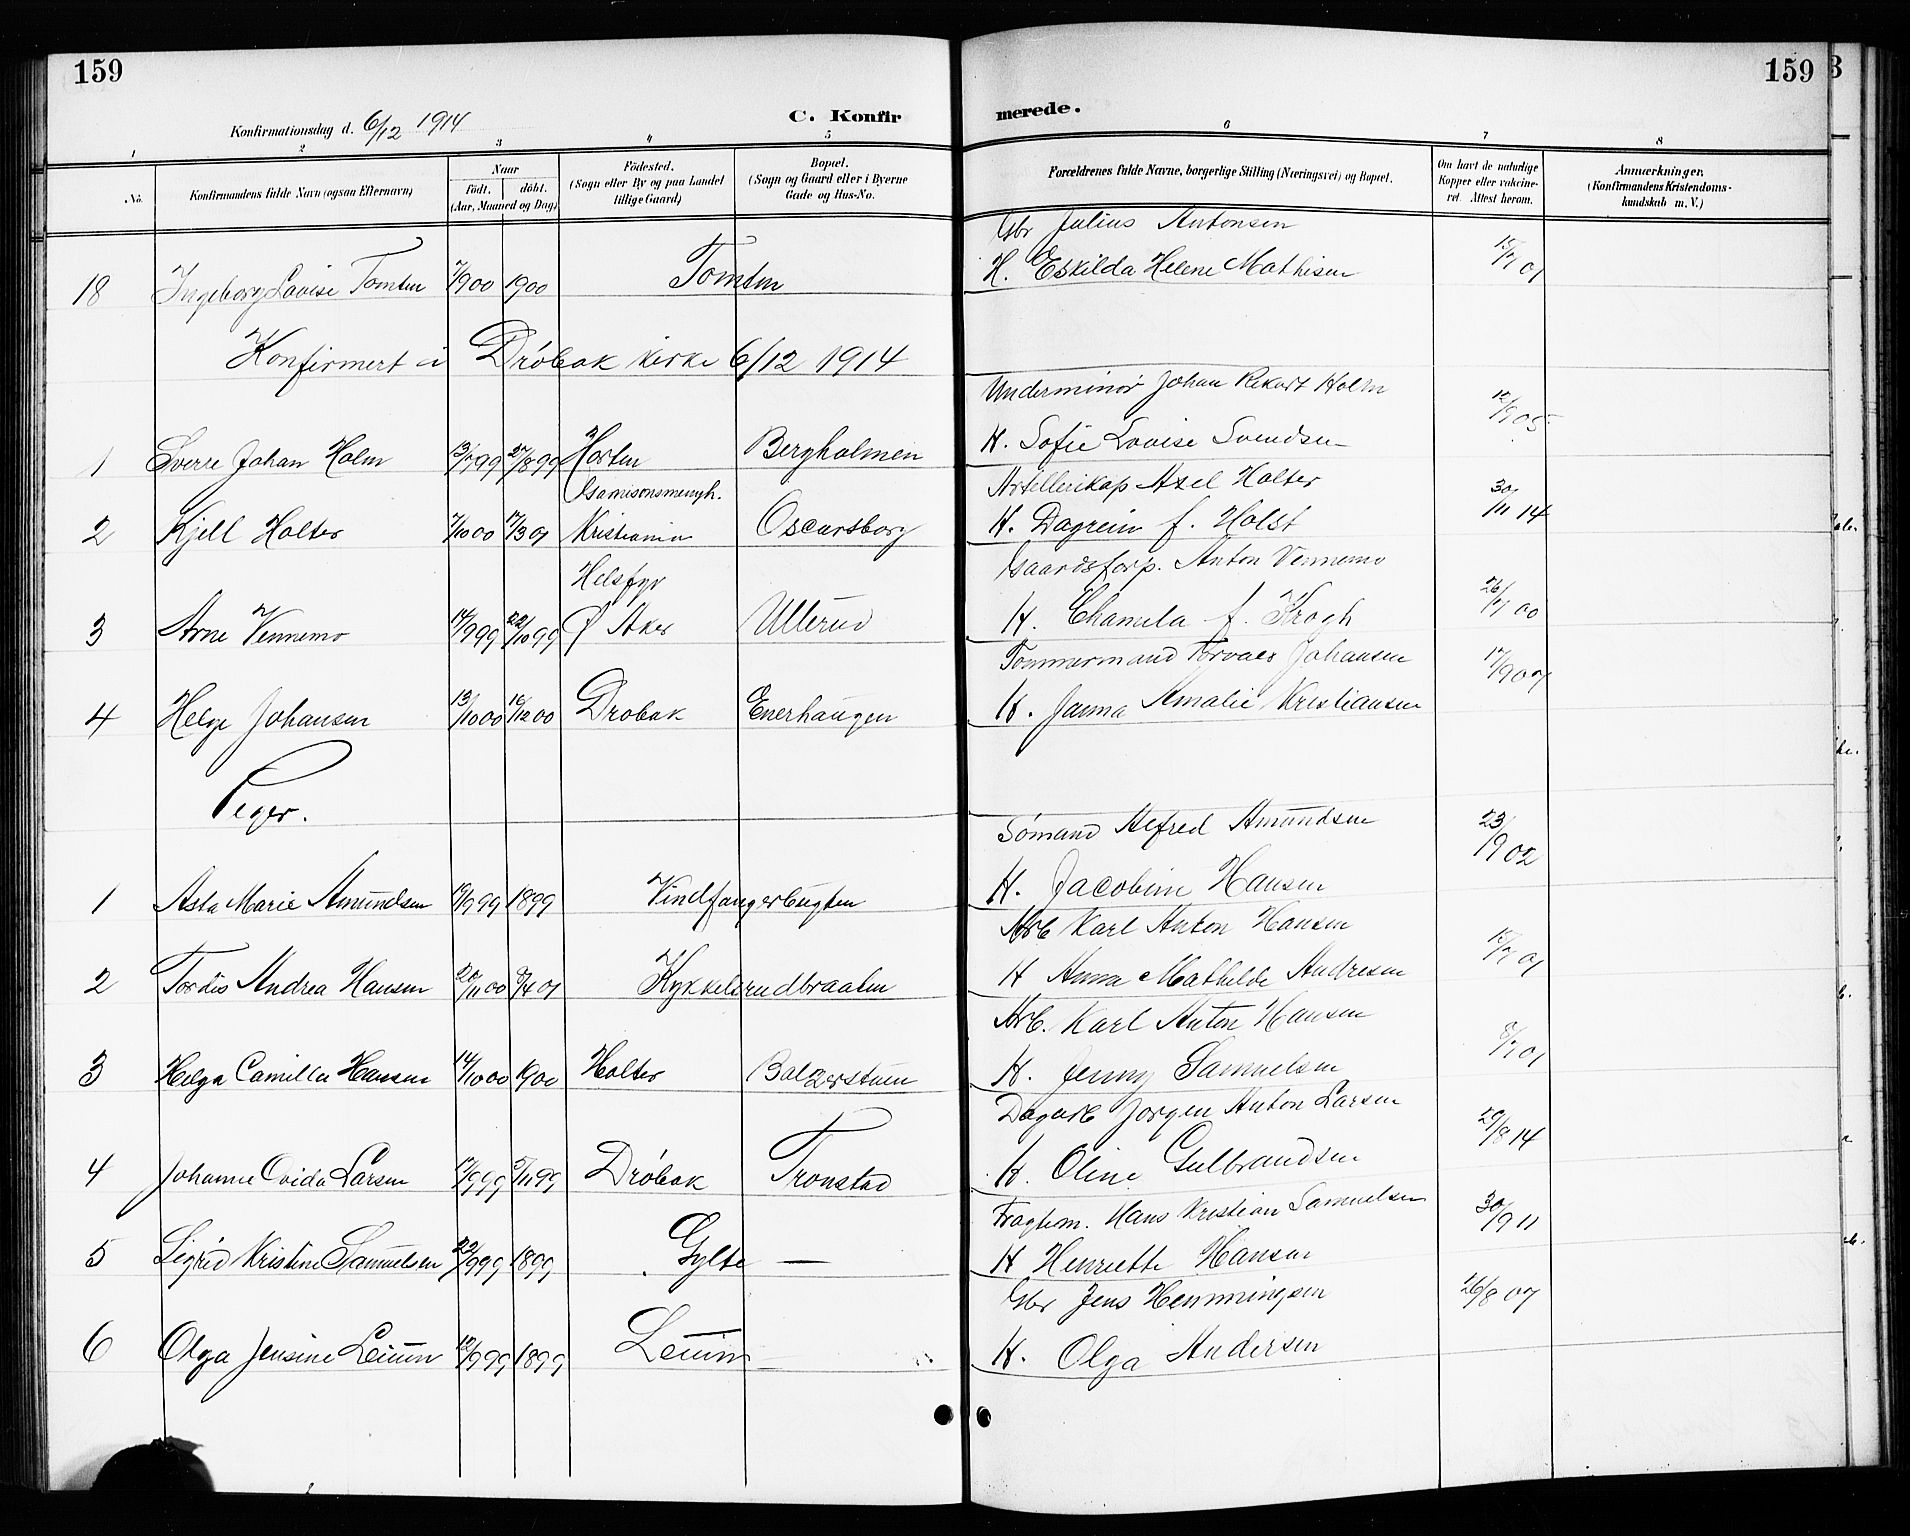 159
159
Konfirmationsdag d. 6/12 1914
C. Konfir
merede.
1 2 3 4 5 6 7 8
No.
Konfirmandens fulde Navn (ogsaa Efternavn)
Naar
födt. döbt.
(Aar, Maaned og Dag)
Födested.
(Sogn eller By og paa Landet
tillige Gaard)
Bopæl.
(Sogn og Gaard eller i Byerne
Gade og Hus-No.
Forældrenes fulde Navne, borgerlige Stilling (Næringsvei) og Bopæl.
Om havt de naturlige
Kopper eller vakcine-
ret. Attest herom.
Anmærkninger.
(Konfirmandens Kristendoms-
kundskab m. V.)
Gbr Julius Antonsen
18 Ingeborg Lovise Tomten 7/9 00 1900 Tomten H. Eskilda Helene Mathisen 15/7 01
Konfirmert i Drøbak kirke 6/12 1914
Underminør Johan Rikard Holm
1 Sverre Johan Holm 13/7 99 27/8 99 Horten Bergholmen H. Sofie Lovise Svendsen 12/9 05
Garnisonsmenigh. Artellerikap Axel Holter
2 Kjell Holter 7/10 00 17/3 01 Kristiania Oscarsborg H. Dagrein f. Holst 30/11 14
Helsfyr Gaardsforp. Anton Vennemo
3 Arne Vennemo 14/9 99 22/10 99 Ø Aker Ullerud H. Chamila f. Krogh 26/7 00
Tommermand Torvald Johansen
4 Helge Johansen 13/10 00 16/12 00 Drøbak Enerhaugen H. Janna Amalie Kristiansen 17/9 07
Peger.
Sømand Alfred Amundsen
1 Asta Marie Amundsen 19/9 99 1899 Vindfangerbugten H. Jacobine Hansen 23/9 02
Arb Karl Anton Hansen
2 Tordis Andrea Hansen 20/11 00 8/4 01 Kykkelsrudbraaten H Anna Mathilde Andresen 15/7 01
Arb. Karl Anton Hansen
3 Helga Camilla Hansen 14/10 00 1900 Holter Balzerstuen H. Jenny Samuelsen 8/7 01
Dagarb Jørgen Anton Larsen
4 Johanne Ovida Larsen 17/9 99 5/11 99 Drøbak Tronstad H. Oline Gulbrandsen 29/8 14
Fragtem. Hans Kristian Samuelsen
5 Sigrid Kristine Samuelsen 22/9 99 1899 Gylte — H Henriette Hansen 30/9 11
Gbr Jens Hemmingsen
6 Olga Jensine Leiuin 12/9 99 1899 Leiuin H. Olga Andersen 26/8 07